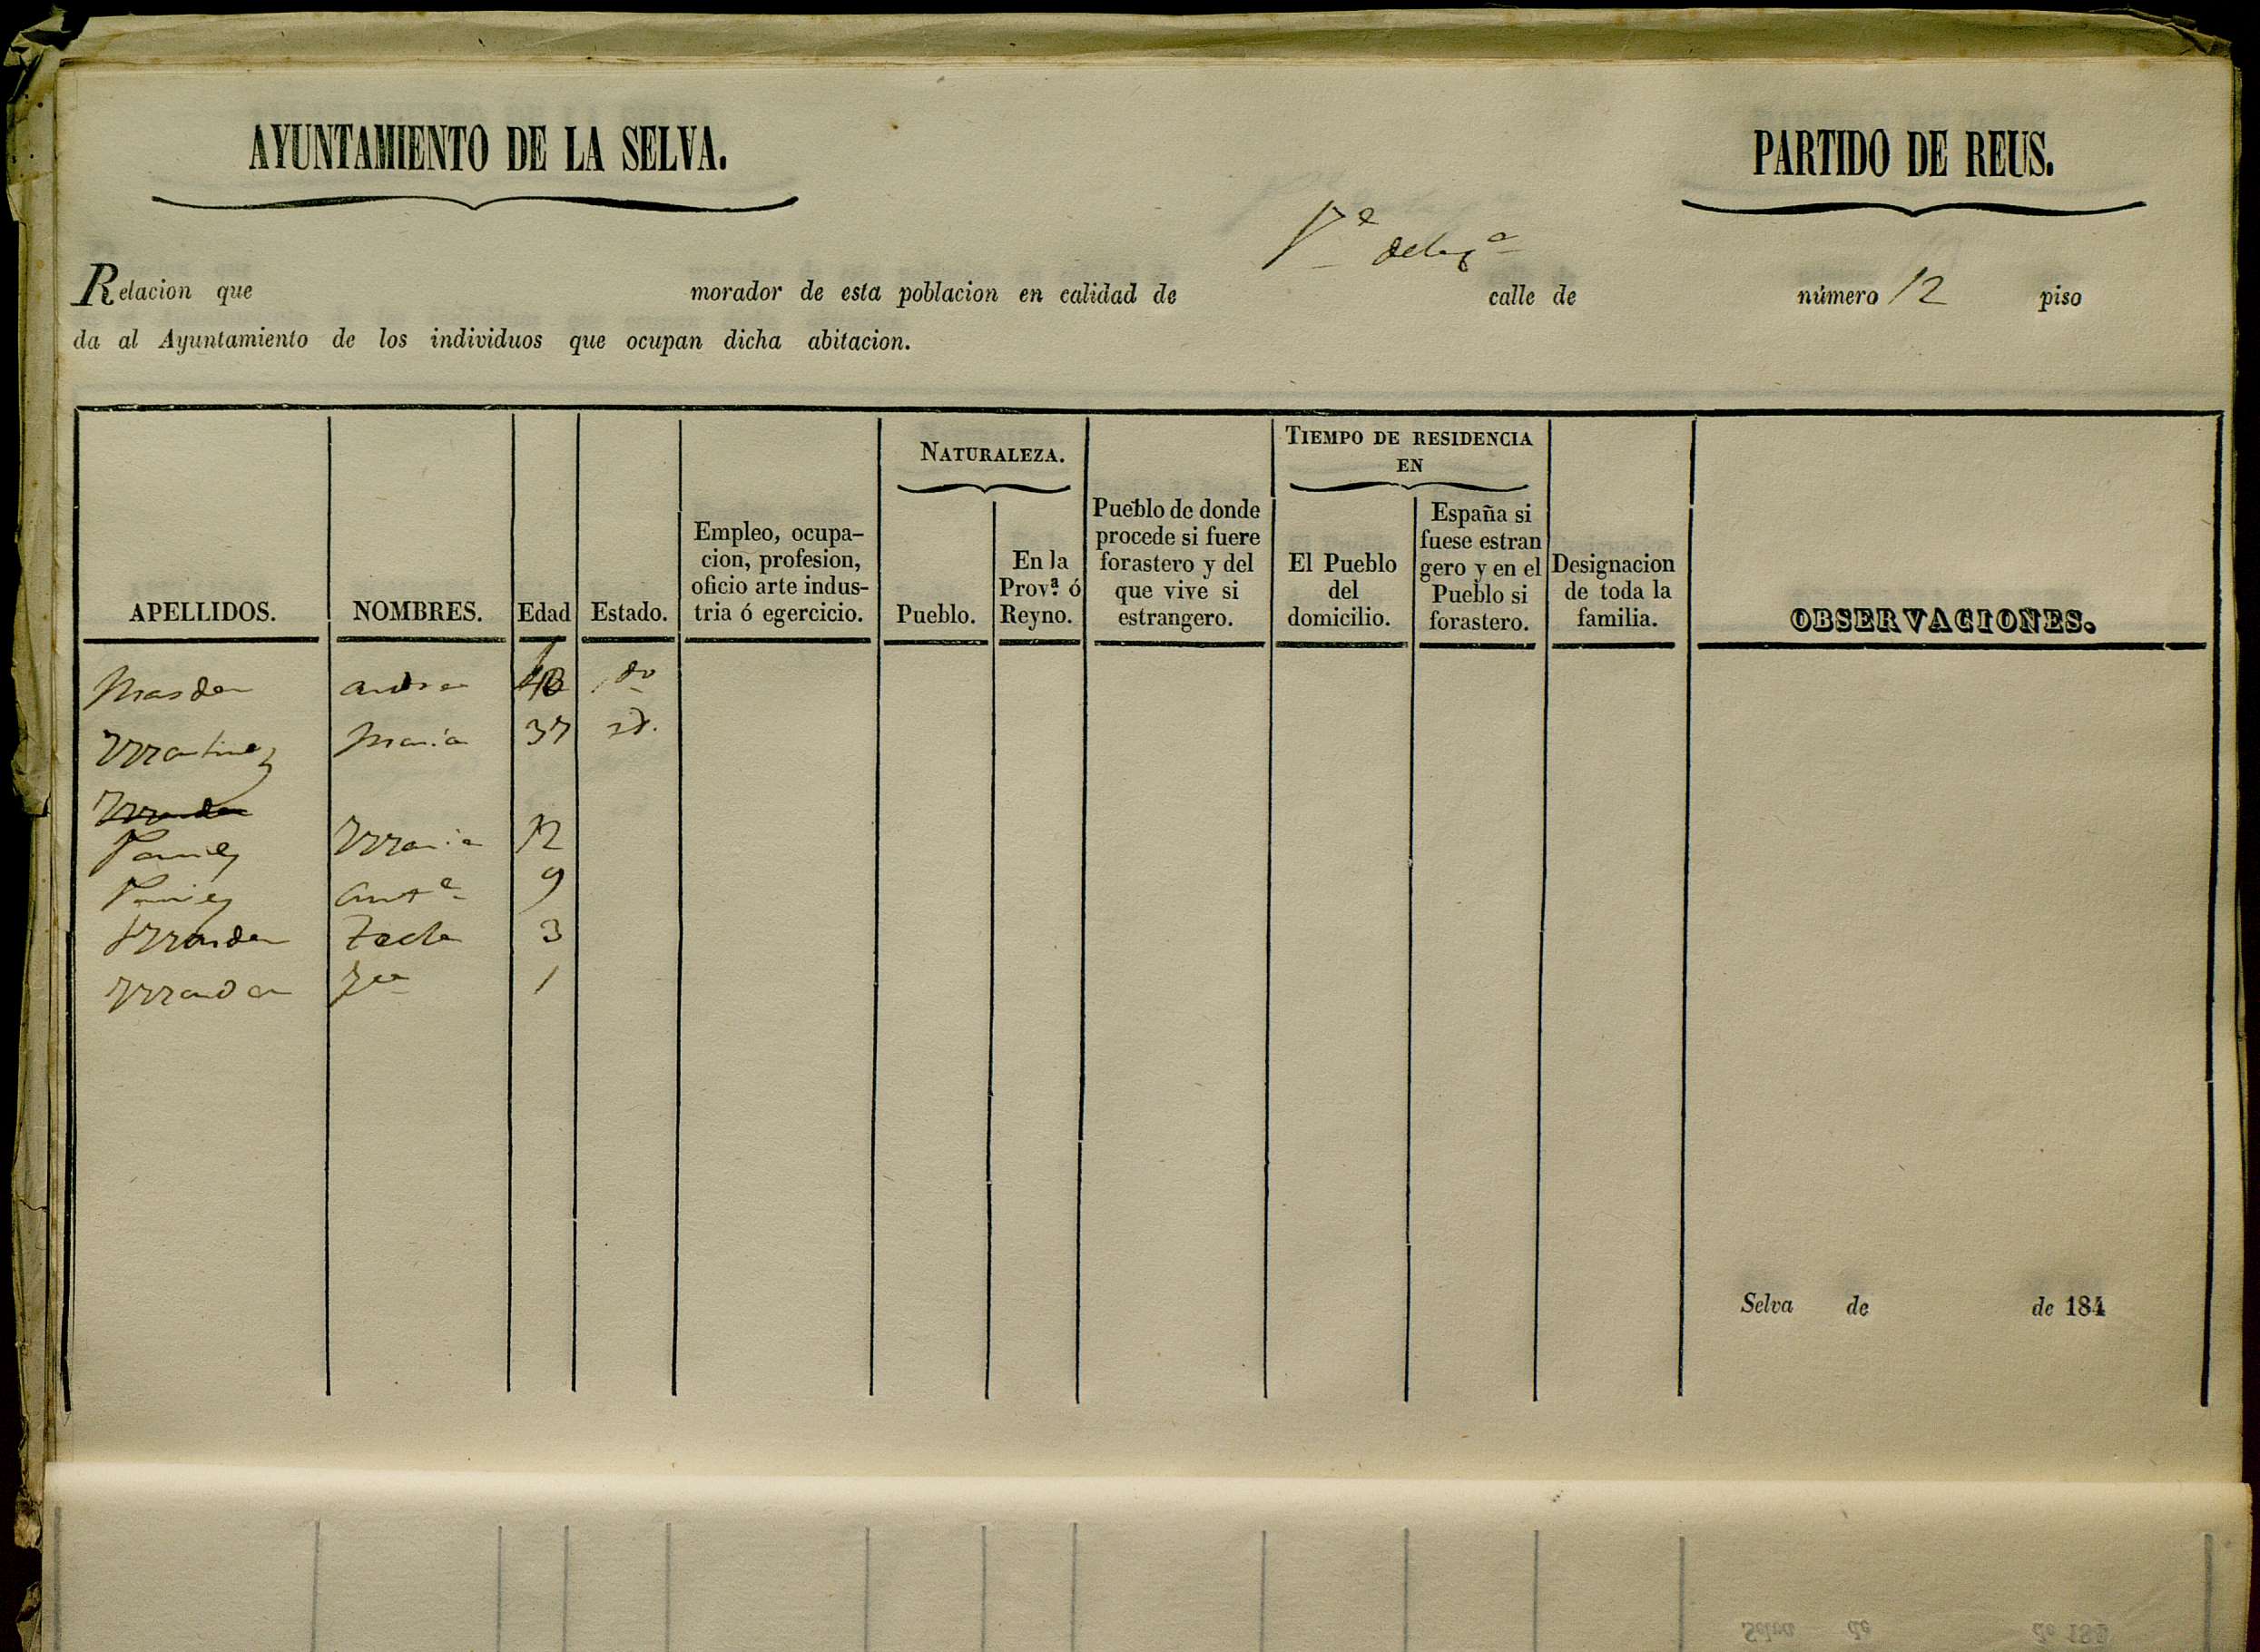 AYUNTAMIENTO DE LA SELVA.
PARTIDO DE REUS.
Relacion que morador de esta poblacion en calidad de calle de número 12 piso
da al Ayuntamiento de los individuos que ocupan dicha abitacion.
APELLIDOS.
NOMBRES.
Edad
Estado.
Empleo, ocupa-
cion, profesion,
oficio arte indus-
tria ó egercicio.
NATURALEZA.
Pueblo.
En la
Prov.ª ó
Reyno.
Pueblo de donde
procede si fuere
forastero y del
que vive si
estrangero.
TIEMPO DE RESIDENCIA
EN
El Pueblo
del
domicilio.
España si
fuese estran
gero y en el
Pueblo si
forastero.
Designacion
de toda la
familia.
OBSERVACIONES.
Masdeu Andreu
Martinez Maria 37
Maria 12
Antª 9
Masdeu Tecla 3
Masdeu 1
Selva de de 184